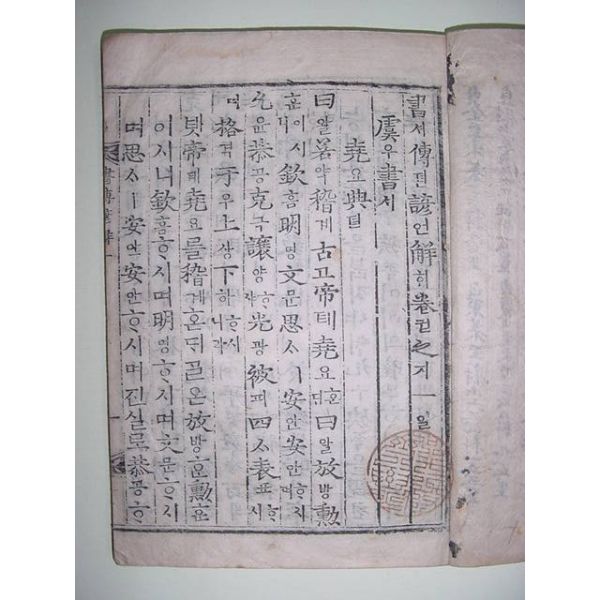 書셔傳뎐諺언解ᄒᆡ卷권之지一일
虞우書셔
堯요典뎐
曰왈若약稽계古고帝뎨堯요혼ᄃᆡ曰왈放방勳
훈이시니欽흠明명文문思ᄉᆞㅣ安안安안ᄒᆞ시며
允윤恭공克극讓양ᄒᆞ샤光광被피四ᄉᆞ表표ᄒᆞ시
며格격于우上샹下하ᄒᆞ시니라
녯帝뎨堯요를稽계혼ᄃᆡᄀᆞᆯ온放방ᄒᆞᆫ勳훈
이시니欽흠ᄒᆞ시며明명ᄒᆞ시며文문ᄒᆞ시
며思ᄉᆞㅣ安안安안ᄒᆞ시며진실로恭공ᄒᆞ
書傳諺解一